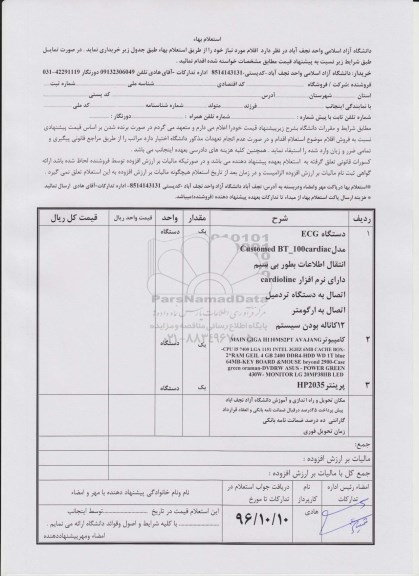 استعلام بهاء
دانشگاه آزاد اسلامی واحد نجف آباد در نظر دارد اقلام مورد نیاز خود را از طریق استعلام بهاء طبق جدول زیر خریداری نماید. در صورت تمایل
طبق شرایط زیر نسبت به پیشنهاد قیمت مطابق مشخصات خواسته شده اقدام نمائید.
خریدار: دانشگاه آزاد اسلامی واحد نجف آباد -کدپستی: 8514143131 اداره تدارکات -آقای هادی تلفن 09132306049 دورنگار 42291119-031
فروشنده :شرکت / فروشگاه ................ کد اقتصادی ................ شناسه ملی ................ شماره ثبت...
استان ............ شهرستان ............ آدرس ................ کد پستی ................
با نمایندگی اینجانب ................ فرزند ............ متولد ............ شماره شناسنامه ............ کد ملی ............
شماره تلفن ثابت با پیش شماره : ................ شماره تلفن همراه : ................ دورنگار : ................
مطابق شرایط و مقررات دانشگاه بشرح زیرپیشنهاد قیمت خودرا اعلام می دارم و متعهد می گردم در صورت برنده شدن بر اساس قیمت پیشنهادی
نسبه به فروش اقلام موضوع استعلام اقدام و در صورت عدم انجام تعهدات مذکور دانشگاه اختیار دارد مراتب را از طریق مراجع قانونی پیگیری و
تمامی ضرر و زیان وارد شده را استیفاء نماید. همچنین کلیه هزینه های دادرسی بعهده اینجانب می باشد.
کسورات قانونی تعلق گرفته به استعلام بعهده پیشنهاد دهنده می باشد و در صورتیکه مالیات بر ارزش افزوده توسط فروشنده لحاظ شده باشد ارائه
گواهی ثبت نام مالیات بر ارزش افزوده الزامیست و در زمان بعد از تاریخ استعلام هیچگونه مالیات بر ارزش افزوده به این استعلام تعلق نمی گیرد.
*استعلام بهاء در پاکت مهر وامضاء ودربسته به آدرس: نجف آباد دانشگاه آزاد واحد نجف آباد -کدپستی 8514143131 -اداره تدارکات-آقای هادی ارسال نمائید
* هزینه ارسال پاکت استعلام بهاء از مبداء تا تدارکات بعهده پیشنهاد دهنده (فروشنده)میباشد.
ردیف شرح مقدار واحد قیمت واحد ریال قیمت کل ریال
۱ دستگاه ECG یک دستگاه
مدل Customed BT_100cardiac
انتقال اطلاعات بطور بی سیم
دارای نرم افزار cardioline
اتصال به دستگاه تردمیل
اتصال به ارگومتر
۱۲کاناله بودن سیستم
۲ کامپیوتر MAIN GIGA H110MS2PT AVAJANG یک دستگاه
-CPU I5 7400 LGA 1151 INTEL 3GHZ 6MB CACHE BOX-
2*RAM GEIL 4 GB 2400 DDR4-HDD WD 1T blue
64MB-KEY BOARD &MOUSE beyond 2990-Case
green oraman-DVDRW ASUS - POWER GREEN
430W- MONITOR LG 20MP38HB LED
۳ پرینتر HP2035 یک دستگاه
مکان تحویل و راه اندازی و آموزش دانشگاه آزاد نجف آباد
پیش پرداخت ۲۵درصد درقبال ضمانت نامه بانکی و انعقاد قرارداد
گارانتی ده درصد ضمانت نامه بانکی
زمان تحویل فوری
جمع:
مالیات بر ارزش افزوده :
جمع کل با مالیات بر ارزش افزوده :
امضاء رئیس اداره تدارکات نام کارپرداز دریافت جواب استعلام در تدارکات تا مورخ نام ونام خانوادگی پیشنهاد دهنده با مهر و امضاء
هادی ۹۶/۱۰/۱۰ این استعلام قیمت در تاریخ ................ توسط اینجانب
................ با کلیه شرایط و اصول وفوائد دانشگاه ارائه می نمایم.
امضاء ومهرپیشنهاددهنده
ParsNamadData